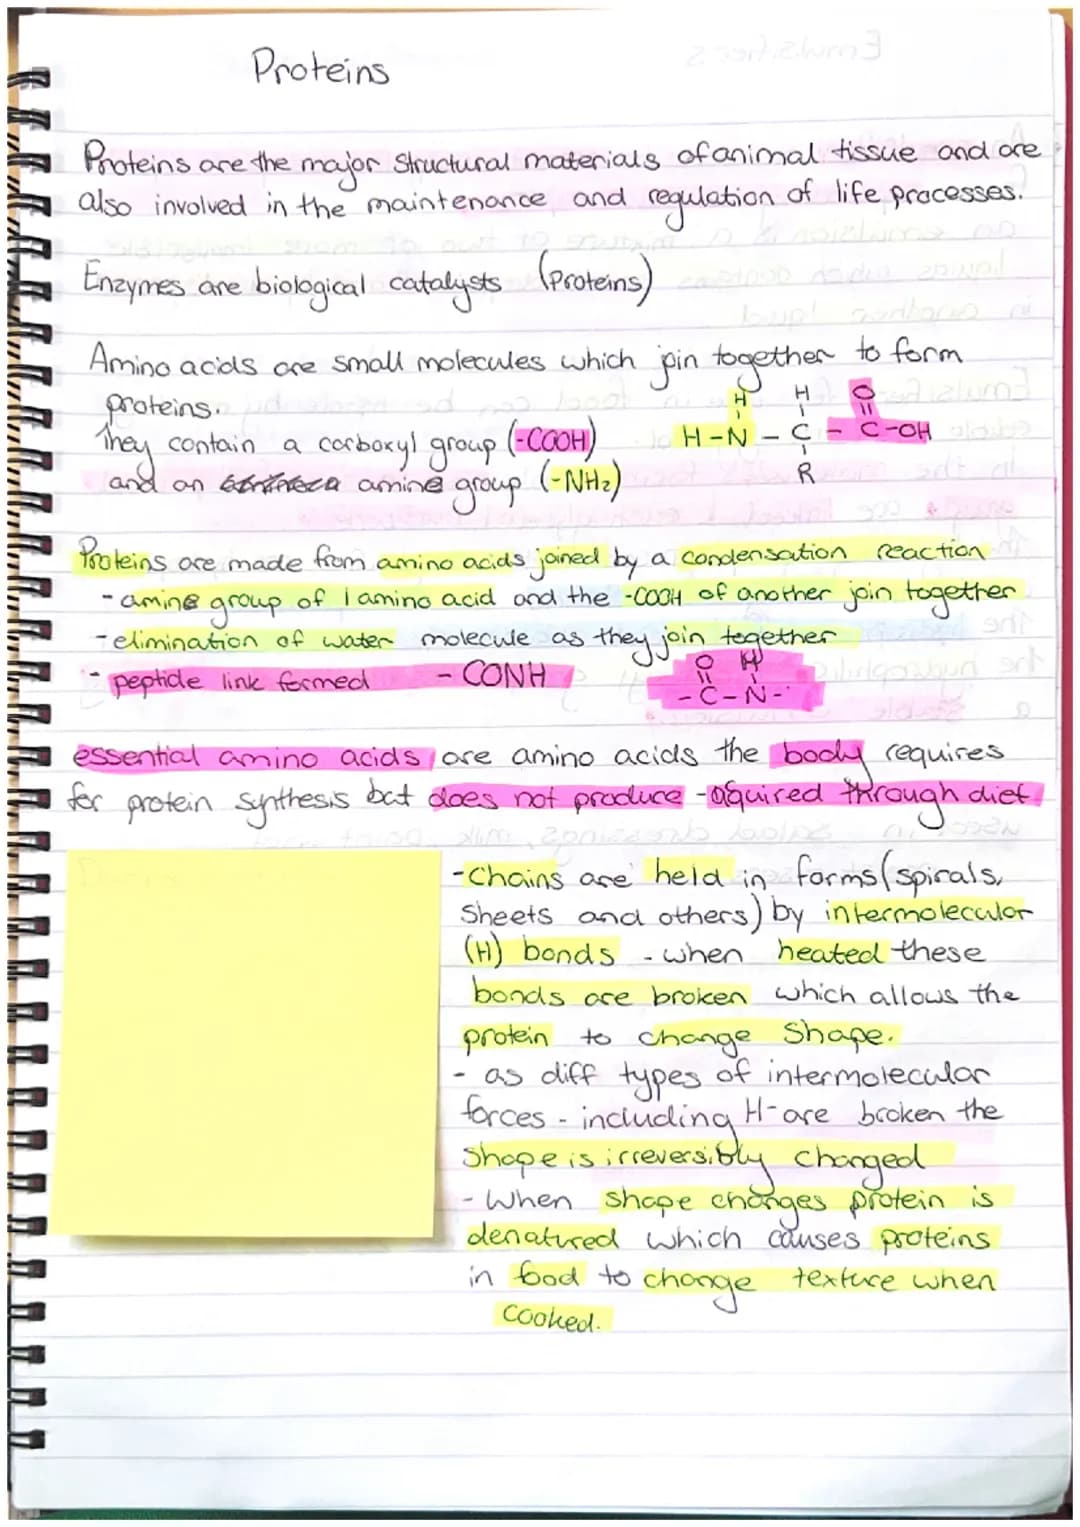 Proteins
Proteins are the major structural materials of animal tissue and are
also involved in the maintenance and regulation of life processes.
Enzymes are biological catalysts (Proteins)
Amino acids are small molecules which join together to form
proteins.
They contain a carboxyl group (-COOH)
and an amine group (-NH2)
H H O
H-N - C - C-OH
R
Proteins are made from amino acids joined by a condensation reaction
- amine group of 1 amino acid and the -COOH of another join together
- elimination of water molecule as they join together
- peptide link formed - CONH
O H
- C - N -
essential amino acids are amino acids the body requires
for protein synthesis but does not produce - aquired through diet
- Chains are held in forms (spirals,
Sheets and others) by intermolecular
(H) bonds - when heated these
bonds are broken which allows the
protein to change shape.
- as diff types of intermolecular
forces - including H- are broken the
shape is irreversibly changed
- When shape changes protein is
denatured which causes proteins
in food to change texture when
cooked.